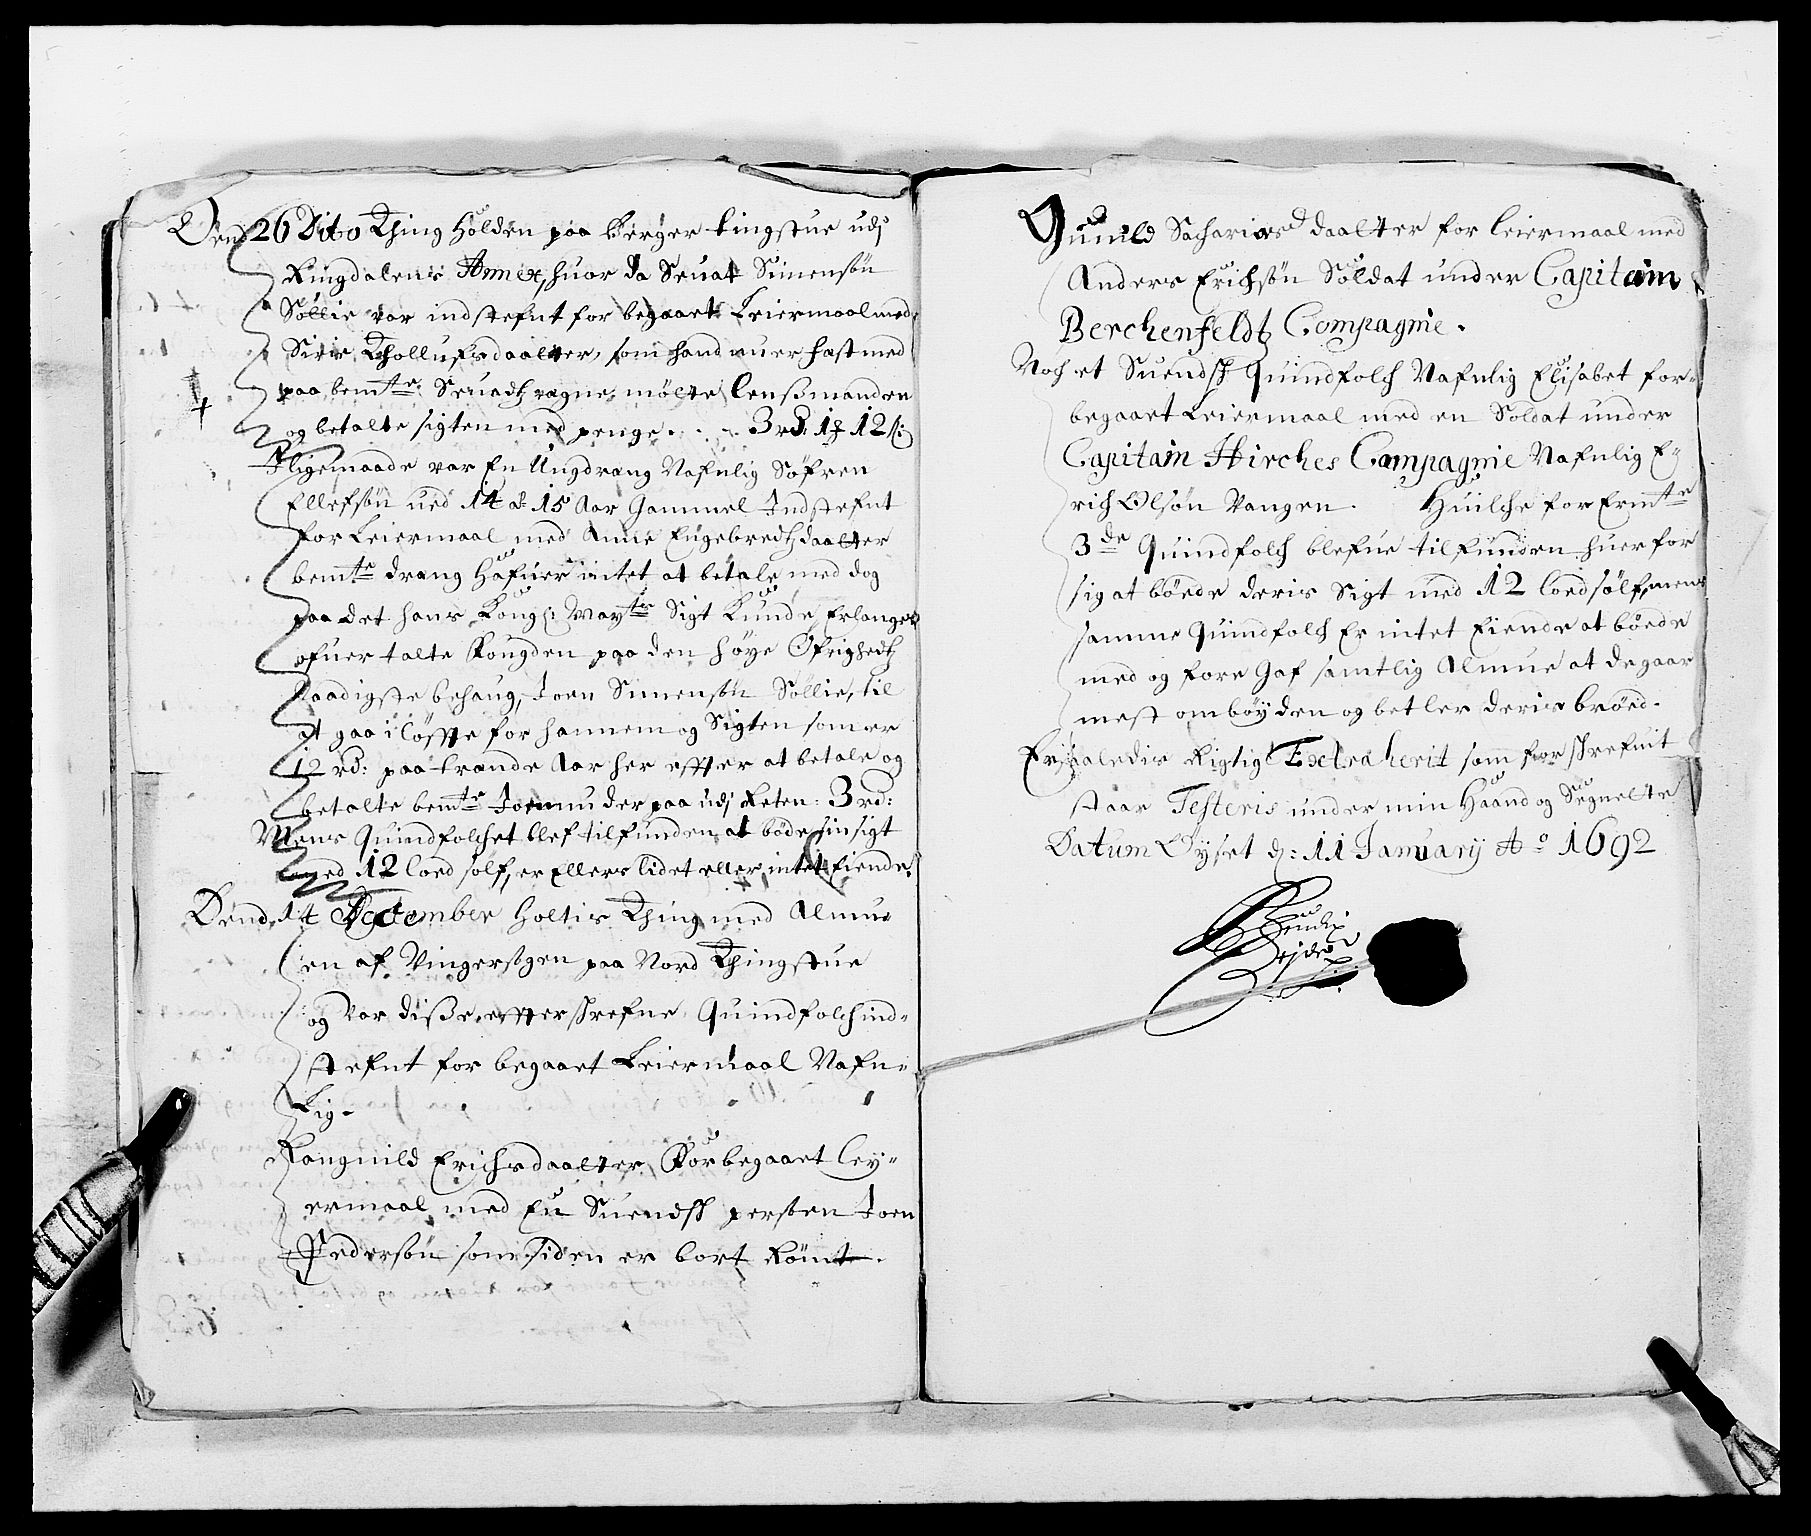 Dend 26 Dito Thing Holden paa Berger tingstue udj
Ringdalens Annex, huor da Seuat Simensøn
Søllie var indstefnt for begaaet Leiermaal med
Siri Thollufsdaatter, som hand nu er fæst med
paa bemte Seuadtz vegne, møtte lensmanden
og betalte sigten med penge. . . 3 rd: 1 ₰ 12 s:
Iligemaade var En Ungdrang Nafnlig Søfren
Ellefsøn ued 14 a 15 Aar Gammel Indstefnt
for Leiermaal med Anne Engebredtzdaatter
bemte drang Hafuer intet at betale med dog
paa det hans Kongl: Maytz Sigt Kunde Erlanges
ofuertalte fougden paa den høye Øfrighedtz
naadigste behaug, Joen Simensøn Søllie, til
at gaa i løffte for hannem og Sigten som er
12 rd: paa trende Aar her effter at betale og
betalte bemte Joen nu der paa udj Reten: 3 rd:
Mens Quindfolchet blef tilfunden at bøde sin sigt
med 12 lod sølf, er Ellers lidet eller intet Eiende.
Dend 14 December Holtis Thing med Almu-
en af Vinger sogen paa Nord Thingstue
og var disse effterschrefne Quindfolch ind-
stefnt for begaaet Leiermaal Nafn-
lig-
Rangnild Erichsdaatter For begaaet Ley-
ermaal med En Suendsch persoen Joen
Pedersøn som siden er bort Rømt.
Gunild Sacharias daatter for leiermaal med
Anders Erichsøn Soldat under Capitain
Berchenfeldtz Compagnie.
Noch et Suendsch Quindfolch Nafnlig Elisabet for-
begaaet Leiermaal med en Soldat under
Capitain Hirches Compagnie Nafnlig E-
rich Olsøn Vangen. Huilche for Ermte
3de Quindfolch blefue tilfunden huer for
sig at bøede deris Sigt med 12 loed sølf, mens
samme Quindfolch Er intet Eiende at bøede
med og fore Gaf samtlig Almue at de gaar
mest ombøyden og betler deris brøed.
Er saaledis Rigtig Extraherit som for schrefuit
staar Testeris under min Haand og Segnette
Datum Øyset d: 11 January Ao 1692